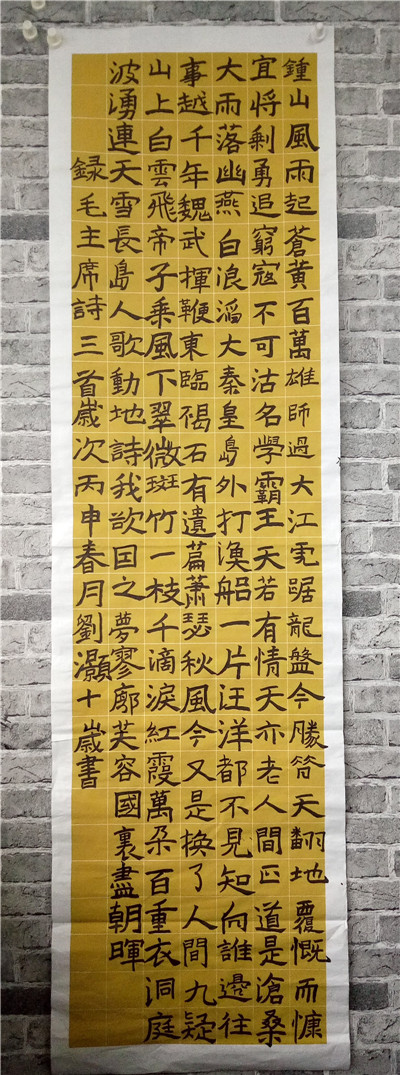 鍾山風雨起蒼黃百萬雄師過大江虎踞龍盤今勝昔天翻地覆慨而慷
宜將剩勇追窮寇不可沽名學霸王天若有情天亦老人間正道是滄桑
大雨落幽燕白浪滔大秦皇島外打漁船一片汪洋都不見知向誰邊往
事越千年魏武揮鞭東臨碣石有遺篇蕭瑟秋風今又是換了人間九疑
山上白雲飛帝子乘風下翠微斑竹一枝千滴淚紅霞萬朵百重衣洞庭
波湧連天雪長島人歌動地詩我欲因之夢寥廓芙容國裏盡朝暉
録毛主席詩三首歲次丙申春月劉灝十歲書